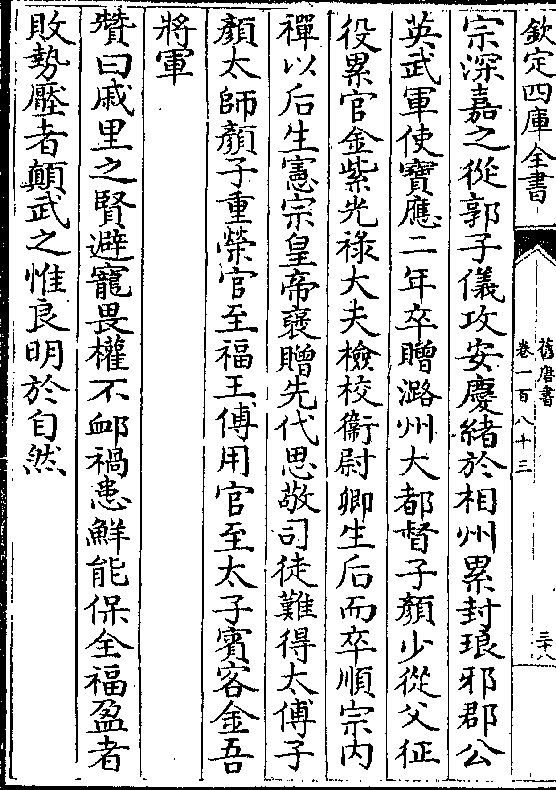 欽定四庫全書
舊唐書
卷一百八十三
三十八
宗深嘉之從郭子儀攻安慶緒於相州累封琅邪郡公
英武軍使寶應二年卒贈潞州大都督子顏少從父征
役累官金紫光祿大夫檢校衛尉卿生后而卒順宗内
禪以后生憲宗皇帝襃贈先代思敬司徒難得太傅子
顏太師顏子重榮官至福王傅用官至太子賓客金吾
將軍
贊曰戚里之賢避寵畏權不衂禍患鮮能保全福盈者
敗勢壓者顛武之惟良明於自然